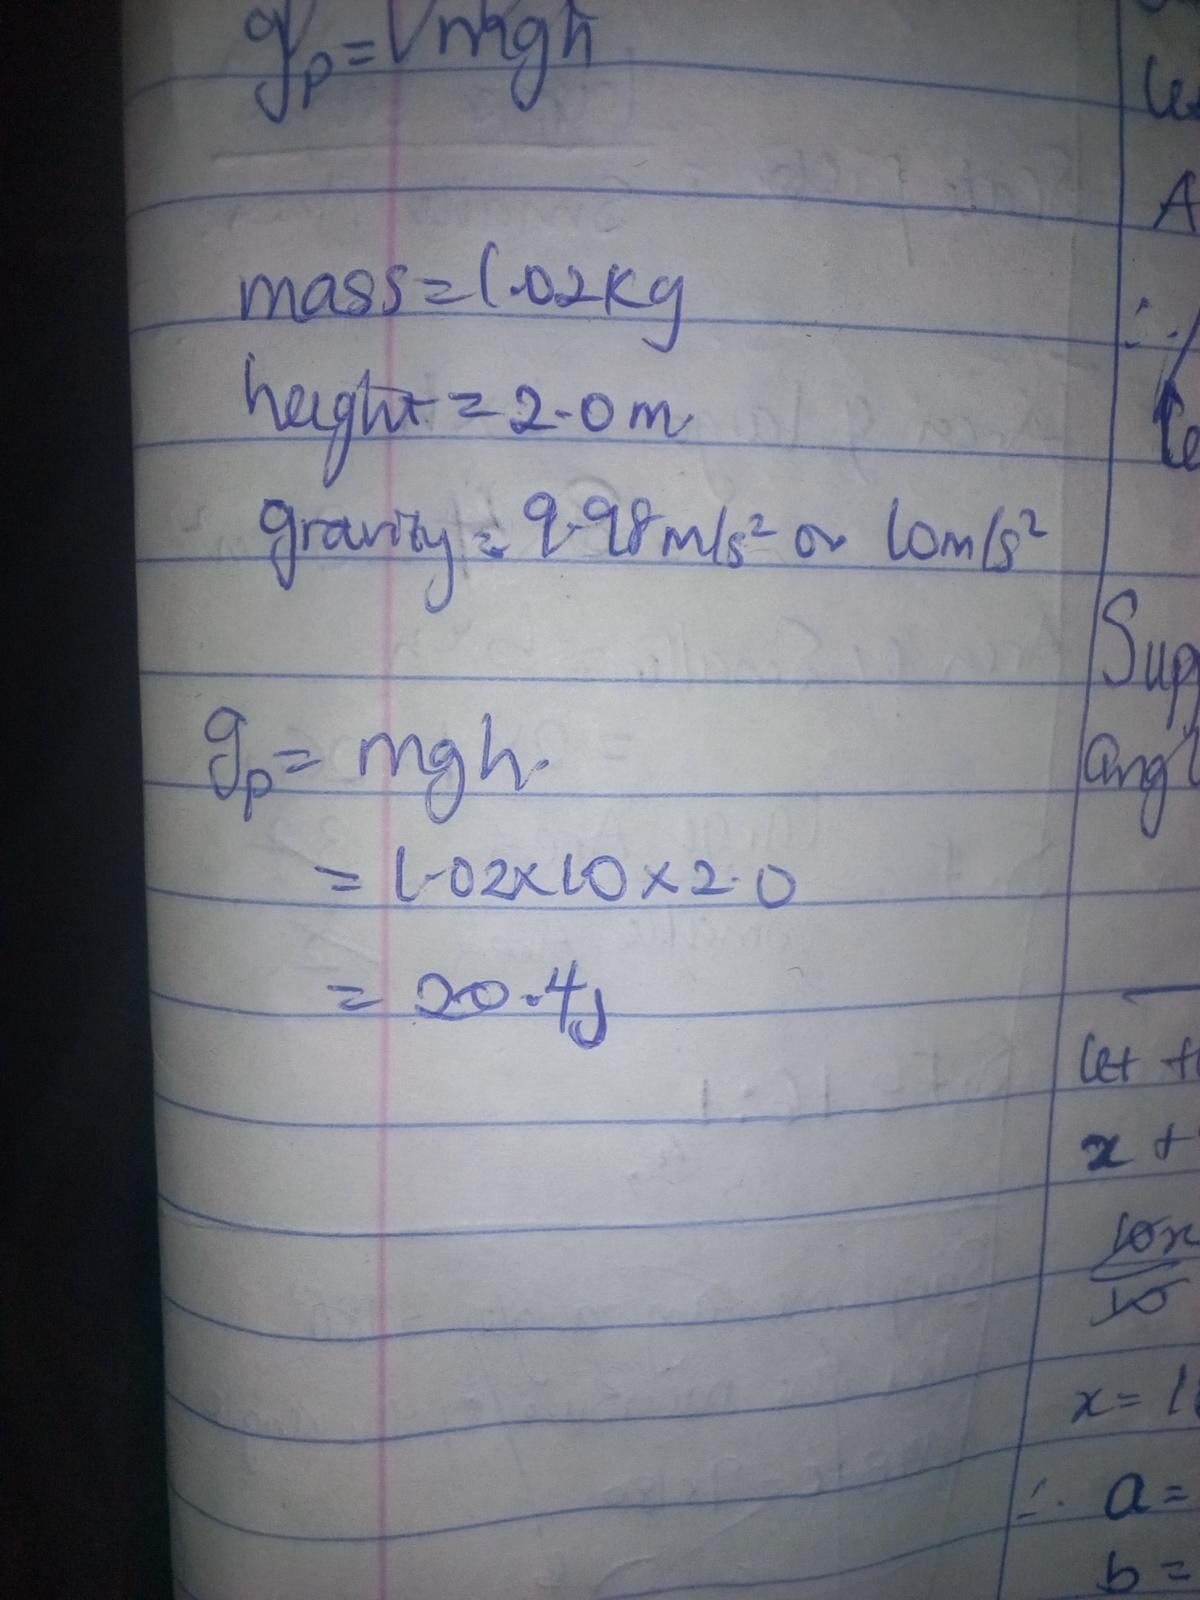 gp = √mgh
mass = 1.02kg
height = 2.0m
gravity = 9.98m/s² or 10m/s²
gp = mgh.
= 1.02x10x2.0
= 20.4j
let
A
∴
Sup
ang
let
x +
10x
10
x = 1
∴ a =
b =